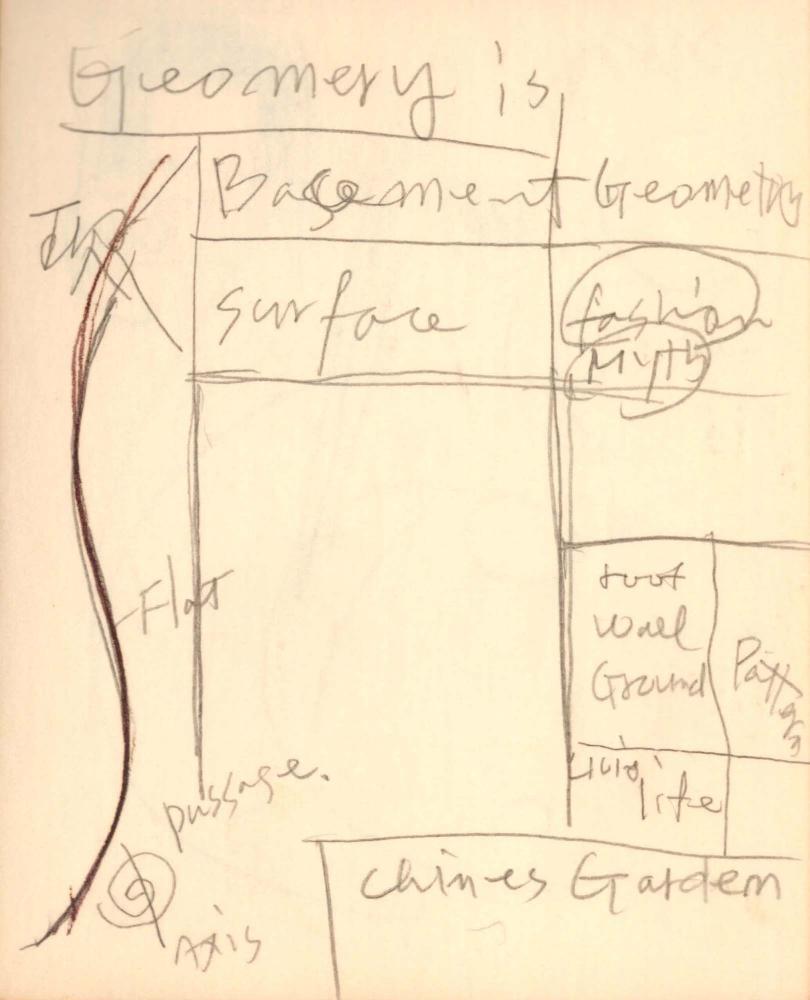 Geomery is
Basement Geometry
surface
fashion
Myth
Flat
roof
wall
Ground
life
passage.
Chines Garden
Axis